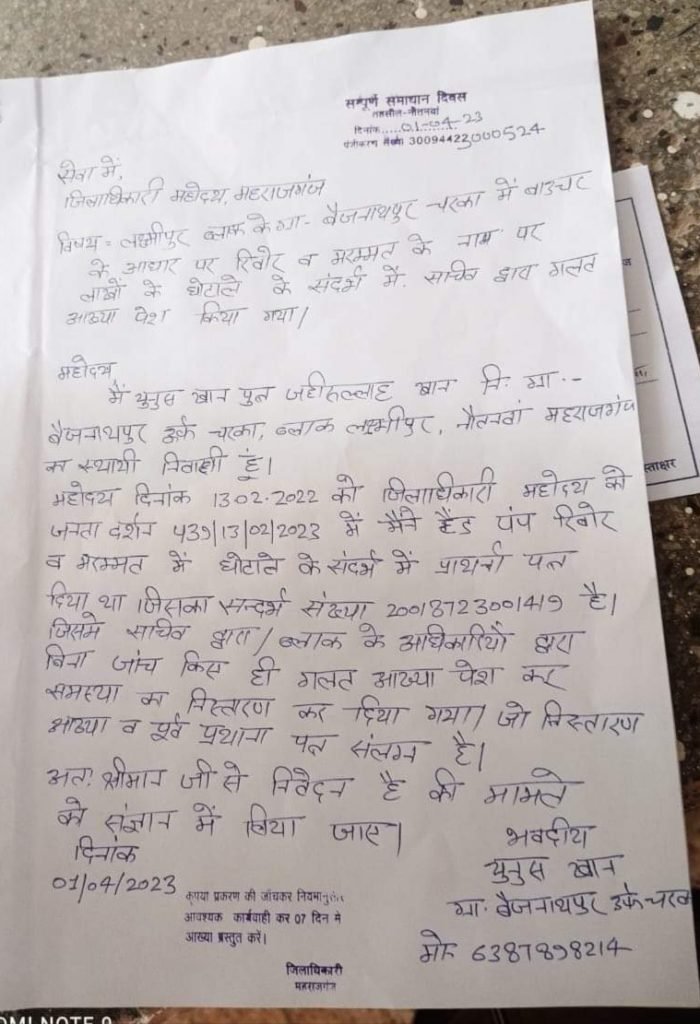 सम्पूर्ण समाधान दिवस
तहसील-नौतनवां
दिनांक.....01-04-23
पंजीकरण संख्या 30094423000524
सेवा में,
जिलाधिकारी महोदय, महराजगंज
विषय - लक्ष्मीपुर ब्लाक के ग्रा - बैजनाथपुर चरका में बाउचर
के आधार पर रिबोर व मरम्मत के नाम पर
लाखों के घोटाले के संदर्भ में. सचिव द्वारा गलत
आख्या पेश किया गया।
महोदय
मैं युनुस खान पुत्र जहीरुल्लाह खान नि. ग्रा. -
बैजनाथपुर उर्फ चरका, ब्लाक लक्ष्मीपुर, नौतनवां महराजगंज
का स्थायी निवासी हूं।
महोदय दिनांक 13.02.2022 को जिलाधिकारी महोदय को
जनता दर्शन 439/13/02/2023 में मैंने हैंड पंप रिबोर
व मरम्मत में घोटाले के संदर्भ में प्रार्थना पत्र
दिया था जिसका सन्दर्भ संख्या 20018723001419 है।
जिसमे सचिव द्वारा / ब्लाक के अधिकारियों द्वारा
बिना जांच किस ही गलत आख्या पेश कर
समस्या का निस्तारण कर दिया गया। जो निस्तारण
आख्या व पूर्व प्रथाना पत्र संलग्न है।
अतः श्रीमान जी से निवेदन है की मामले
को संज्ञान में लिया जाए।
दिनांक
01/04/2023
भवदीय
युनुस खान
ग्रा. बैजनाथपुर उर्फ चरका
मो. 6387898214
कृपया प्रकरण की जॉचकर नियमानुसार
आवश्यक कार्यवाही कर 07 दिन मे
आख्या प्रस्तुत करें।
जिलाधिकारी
महराजगंज
स्ताक्षर
DMI NOTE 9